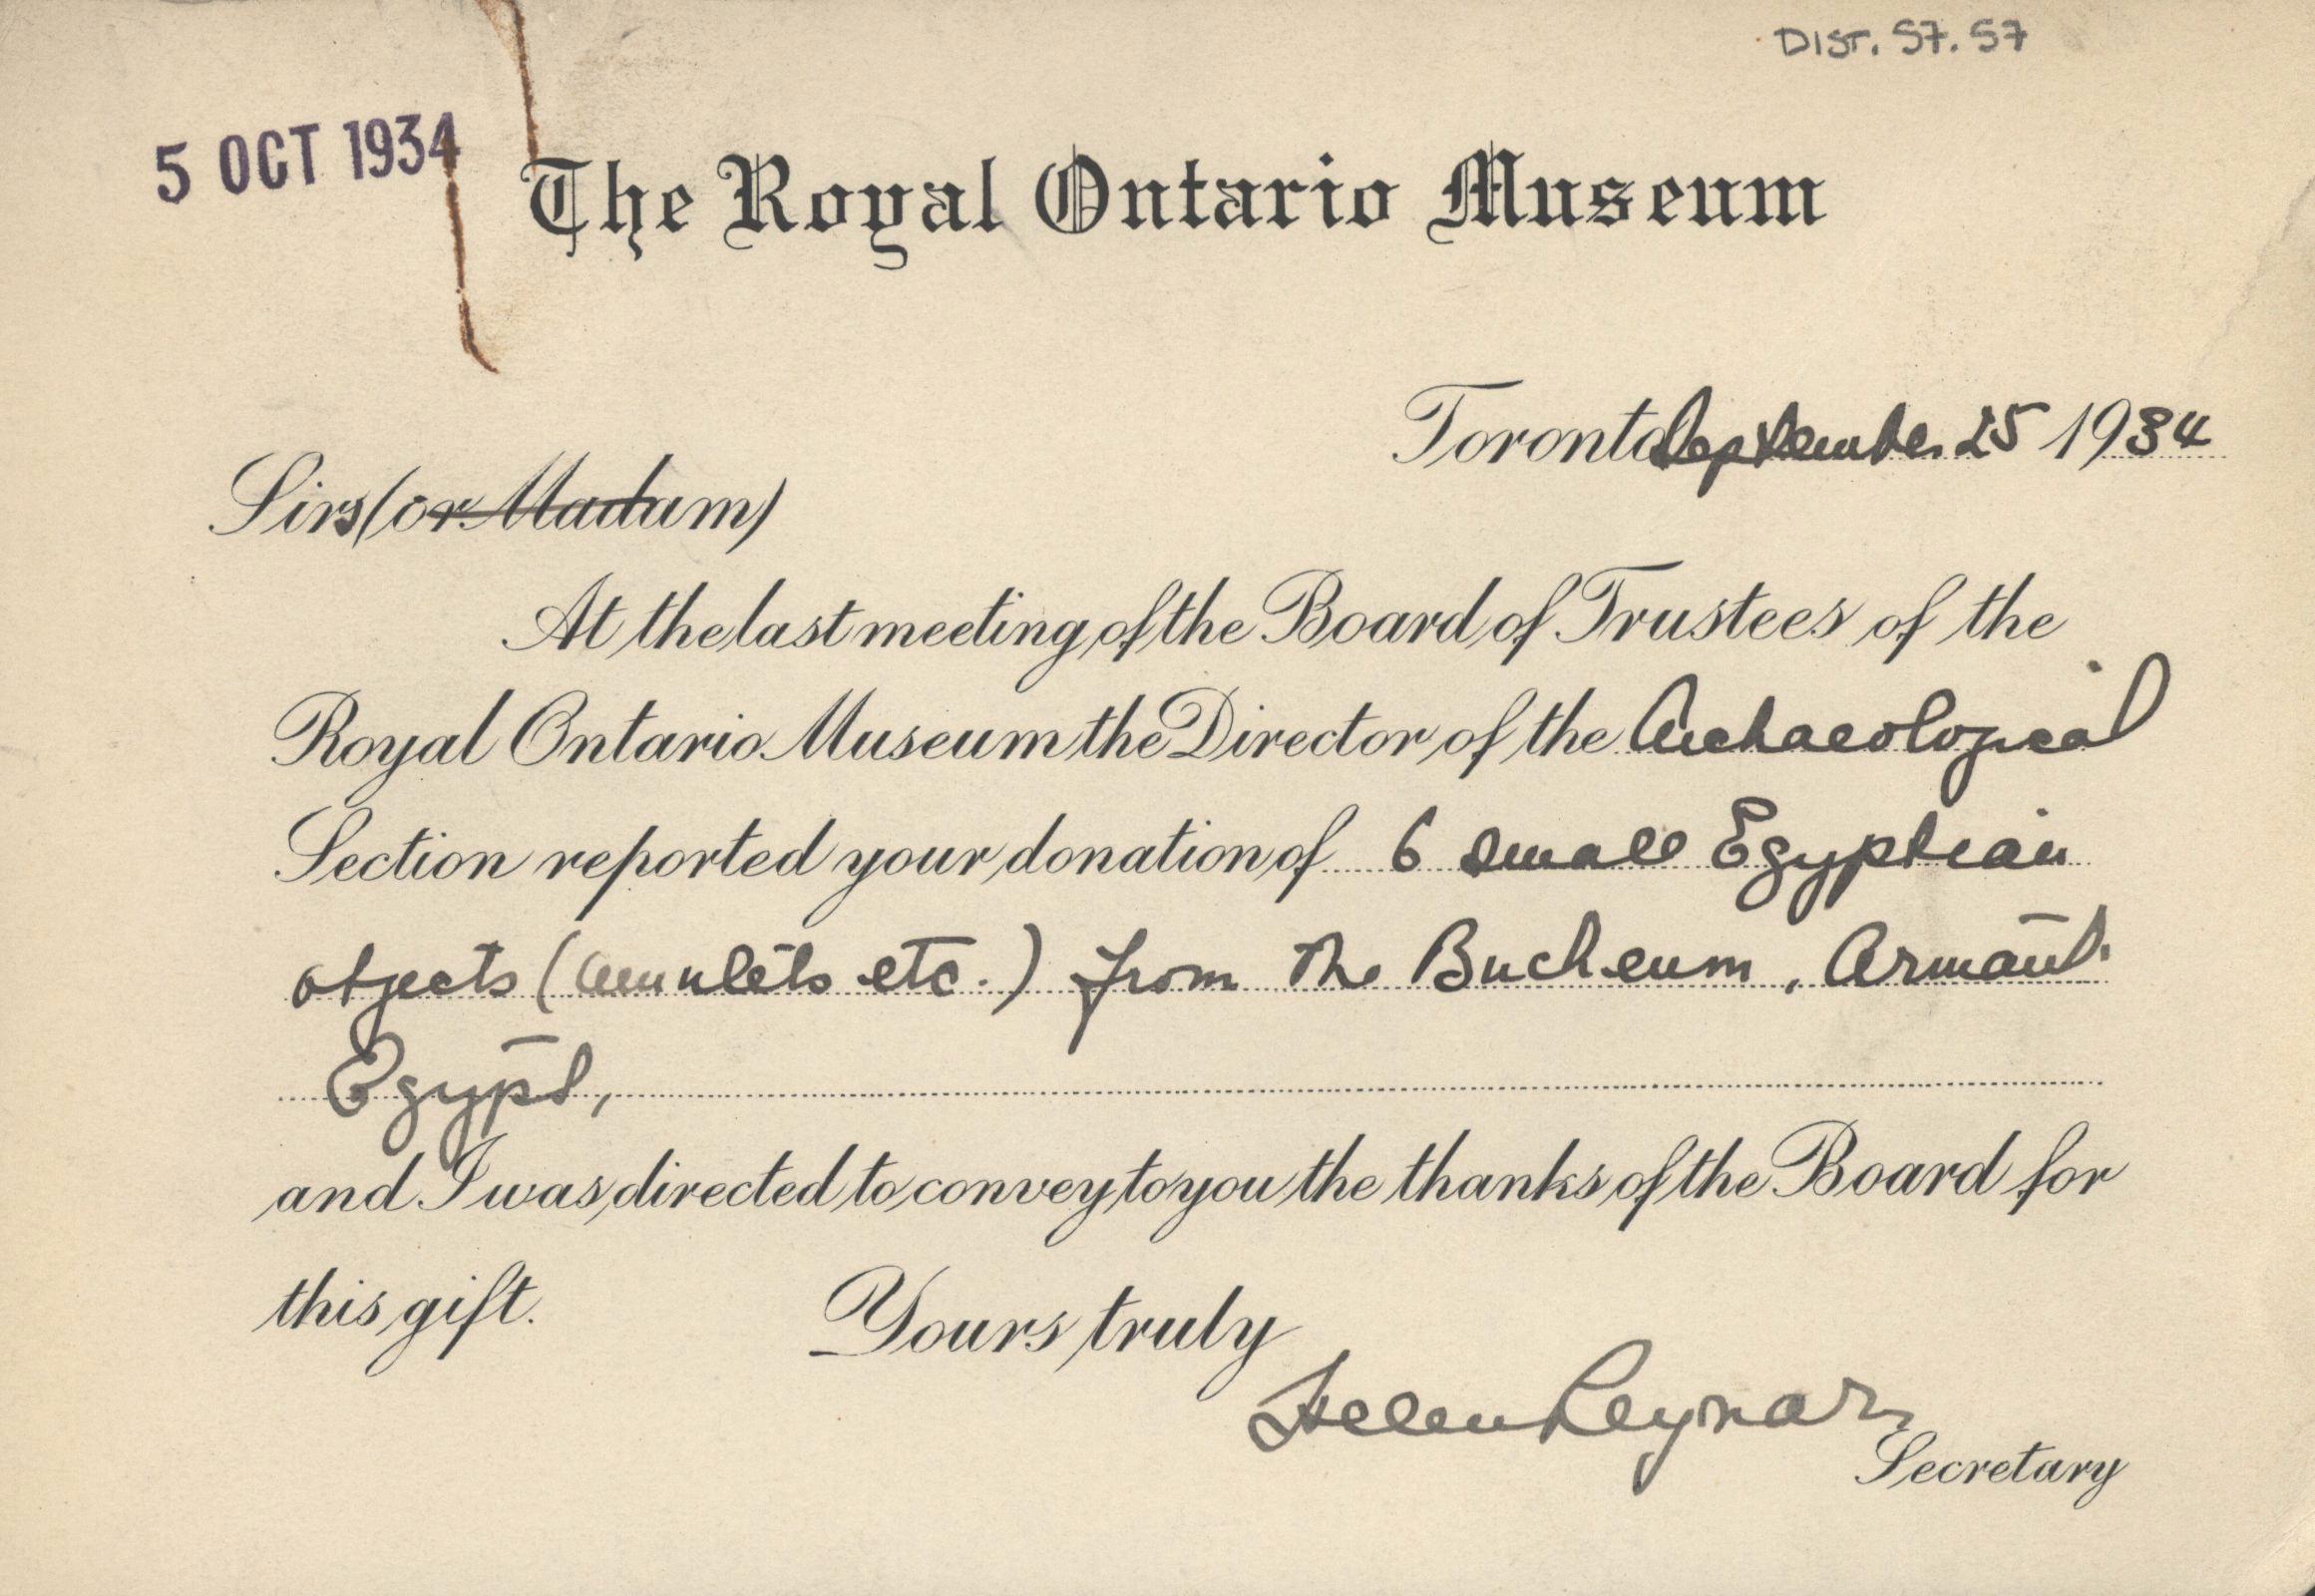 DIST. 57.57
5 OCT 1934
The Royal Ontario Museum
Toronto September 25 1934
Sirs (or Madam)
At the last meeting of the Board of Trustees of the
Royal Ontario Museum the Director of the Archaeological
Section reported your donation of 6 small Egyptian
objects (amulets etc.) from the Bucheum, Armant.
Egypt,
and I was directed to convey to you the thanks of the Board for
this gift.
Yours truly
Helen Reynar
Secretary